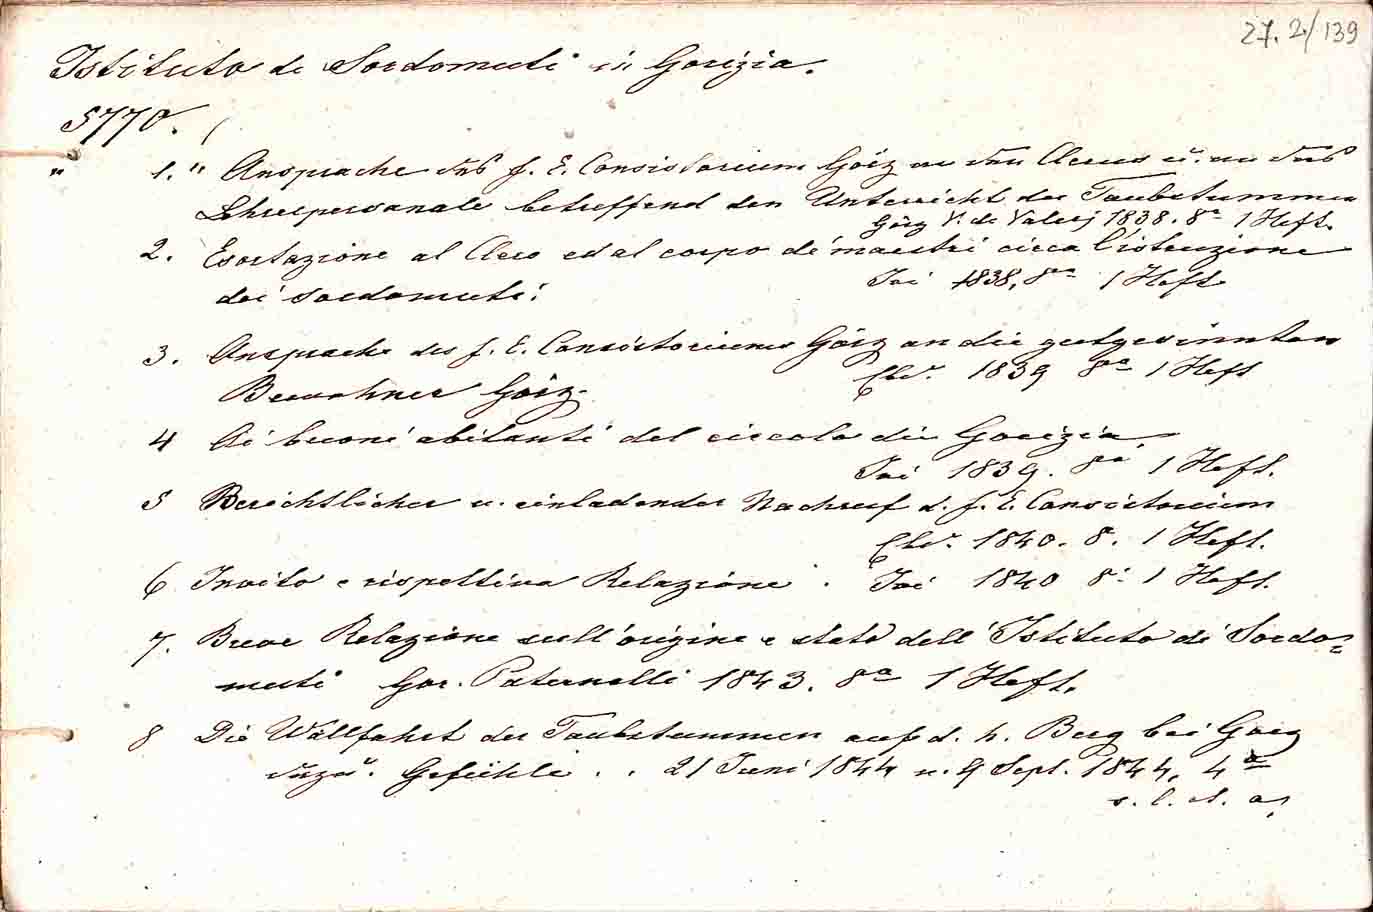 27. 2/139
Istituto di Sordomuti in Gorizia.
5770.
" 1. " Ansprache des f. E. Consistorium Görz an den Clerus u. an das
Lehrerpersonale betreffend den Unterricht der Taubstummen
Görz V. de Valerj 1838. 8° 1 Heft.
2. Esortazione al Clero ed al corpo de' maestri circa l'istruzione
dei sordomuti.
Ivi 1838, 8° 1 Heft
3. Ansprache des f. E. Consistoriums Görz an die gutgesinnten
Ebd. 1839 8° 1 Heft
Bewohner Görz.
4 Ai buoni abitanti del circolo di Gorizia.
Ivi 1839. 8° 1 Heft.
5 Berichtlicher u. einladender Nachruf d. f. E. Consistorium
Ebd. 1840. 8. 1 Heft.
6 Invito e rispettiva Relazione. Ivi 1840 8. 1 Heft.
7. Breve Relazione sull'origine e stato dell'Istituto di Sordo=
muti Gor. Paternolli 1843. 8a 1 Heft.
8 Die Wallfahrt der Taubstummen auf d. h. Berg bei Görz
Gefühle . . 21 Juni 1844 u. 9 Sept. 1844, 4°
s. l. et. a.